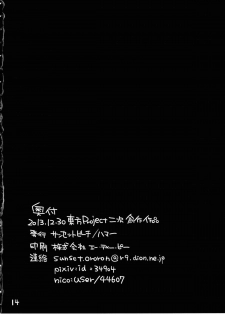 奥付
2013.12.30 東方Project 二次創作作品
発行 サンセットビーチ/ハマー
印刷 株式会社 エーティーピー
連絡 sunset.ororon@r9.dion.ne.jp
pixiv:id=34904
nico:user/44607
14